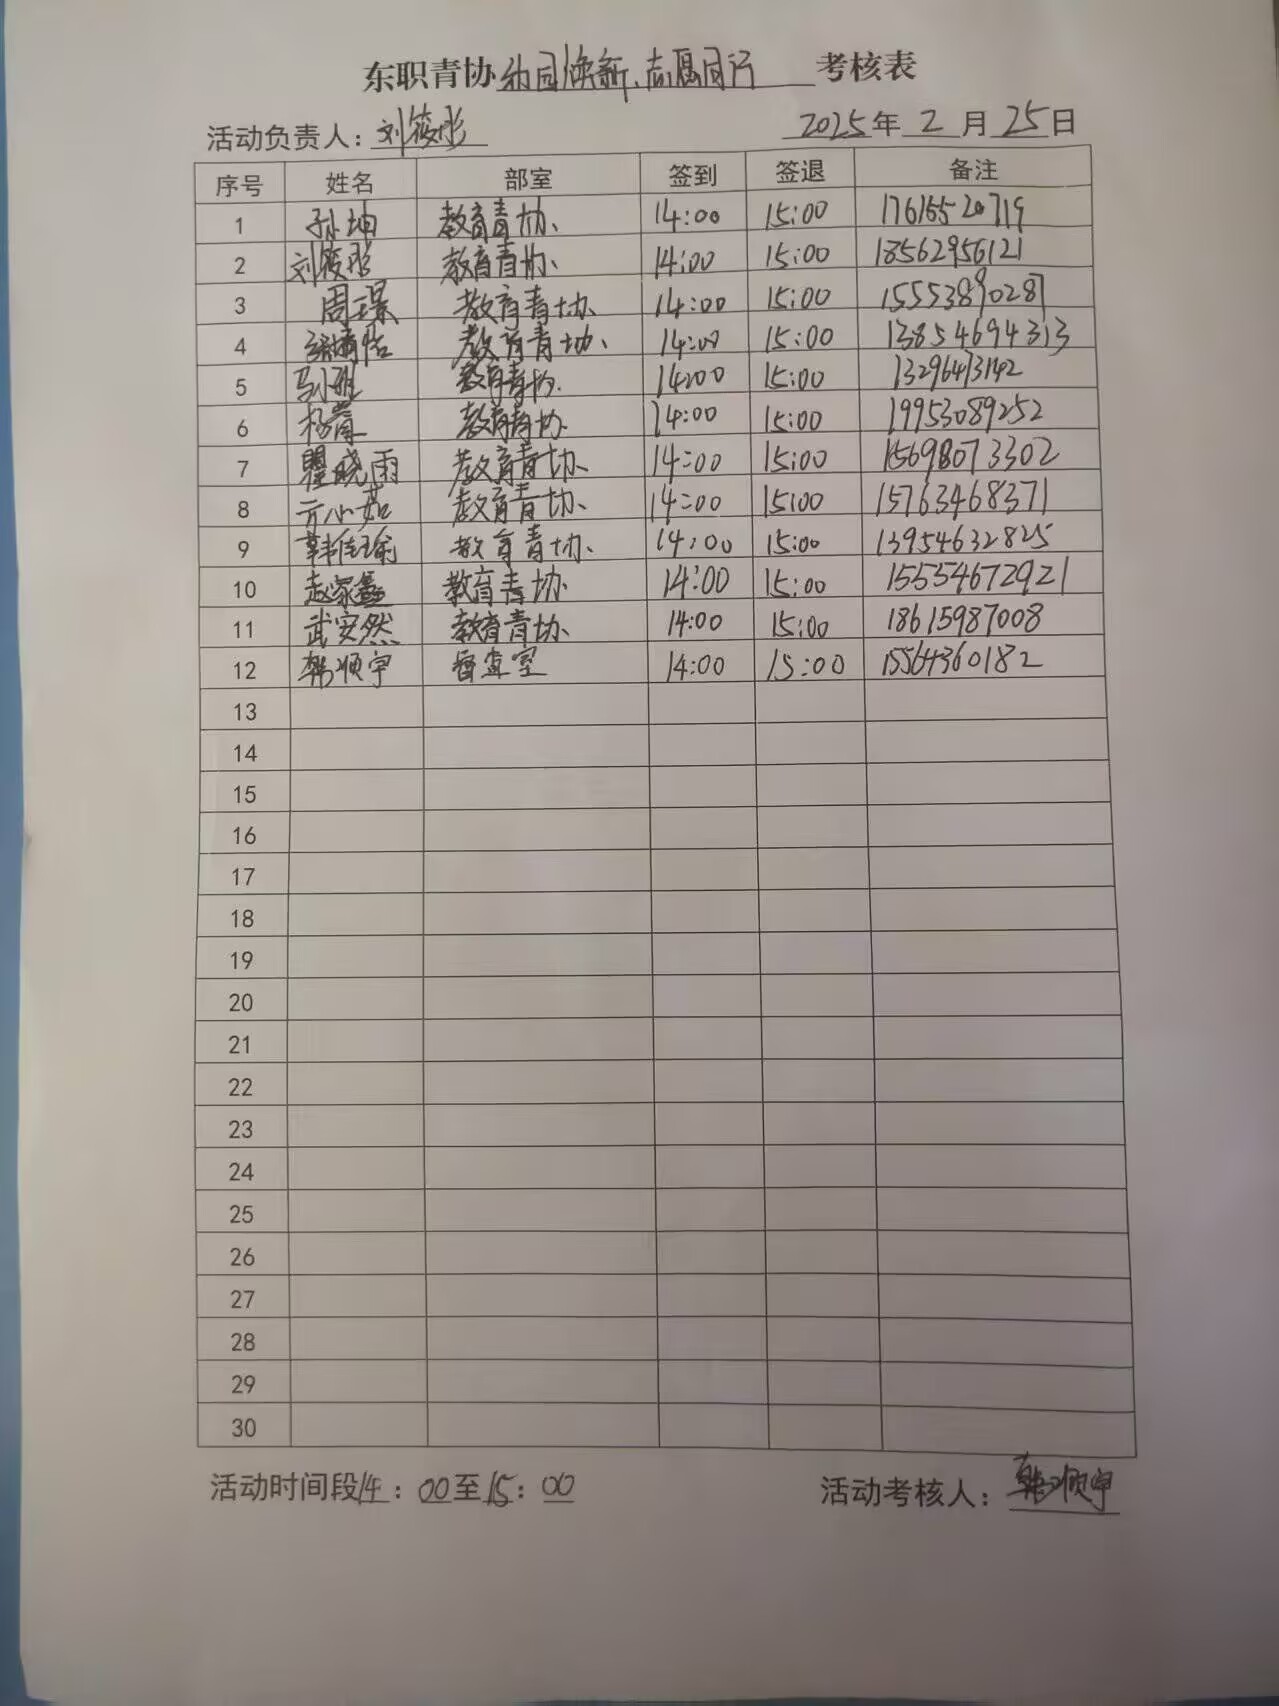 东职青协幼园焕新、志愿同行 考核表
活动负责人：刘筱彤 2025年2月25日
序号 姓名 部室 签到 签退 备注
1 孙坤 教育青协、 14:00 15:00 17616520719
2 刘筱彤 教育青协、 14:00 15:00 18562956121
3 周璟 教育青协、 14:00 15:00 15553890287
4 教育青协、 14:00 15:00 13854694313
5 教育青协. 14:00 15:00 13296473142
6 教育青协 14:00 15:00 19953089252
7 瞿晓雨 教育青协、 14:00 15:00 15698073302
8 亓小茹 教育青协、 14:00 15:00 15763468371
9 韩佳瑜 教育青协、 14:00 15:00 13954632825
10 赵家鑫 教育青协 14:00 15:00 15554672921
11 武安然 教育青协、 14:00 15:00 18615987008
12 韩顺宇 督查室 14:00 15:00 15564360182
13
14
15
16
17
18
19
20
21
22
23
24
25
26
27
28
29
30
活动时间段14：00至15：00 活动考核人：韩顺宇